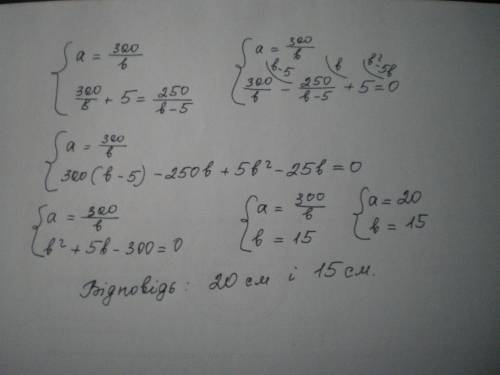 { a = 300/b
{ 300/b + 5 = 250/(b-5)
{ a = 300/b
{ 300/b (b-5) - 250/(b-5) (b) + 5 (b²-5b) = 0
{ a = 300/b
{ 300(b-5) - 250b + 5b² - 25b = 0
{ a = 300/b
{ b² + 5b - 300 = 0
{ a = 300/b
{ b = 15
{ a = 20
{ b = 15
Відповідь: 20 см і 15 см.